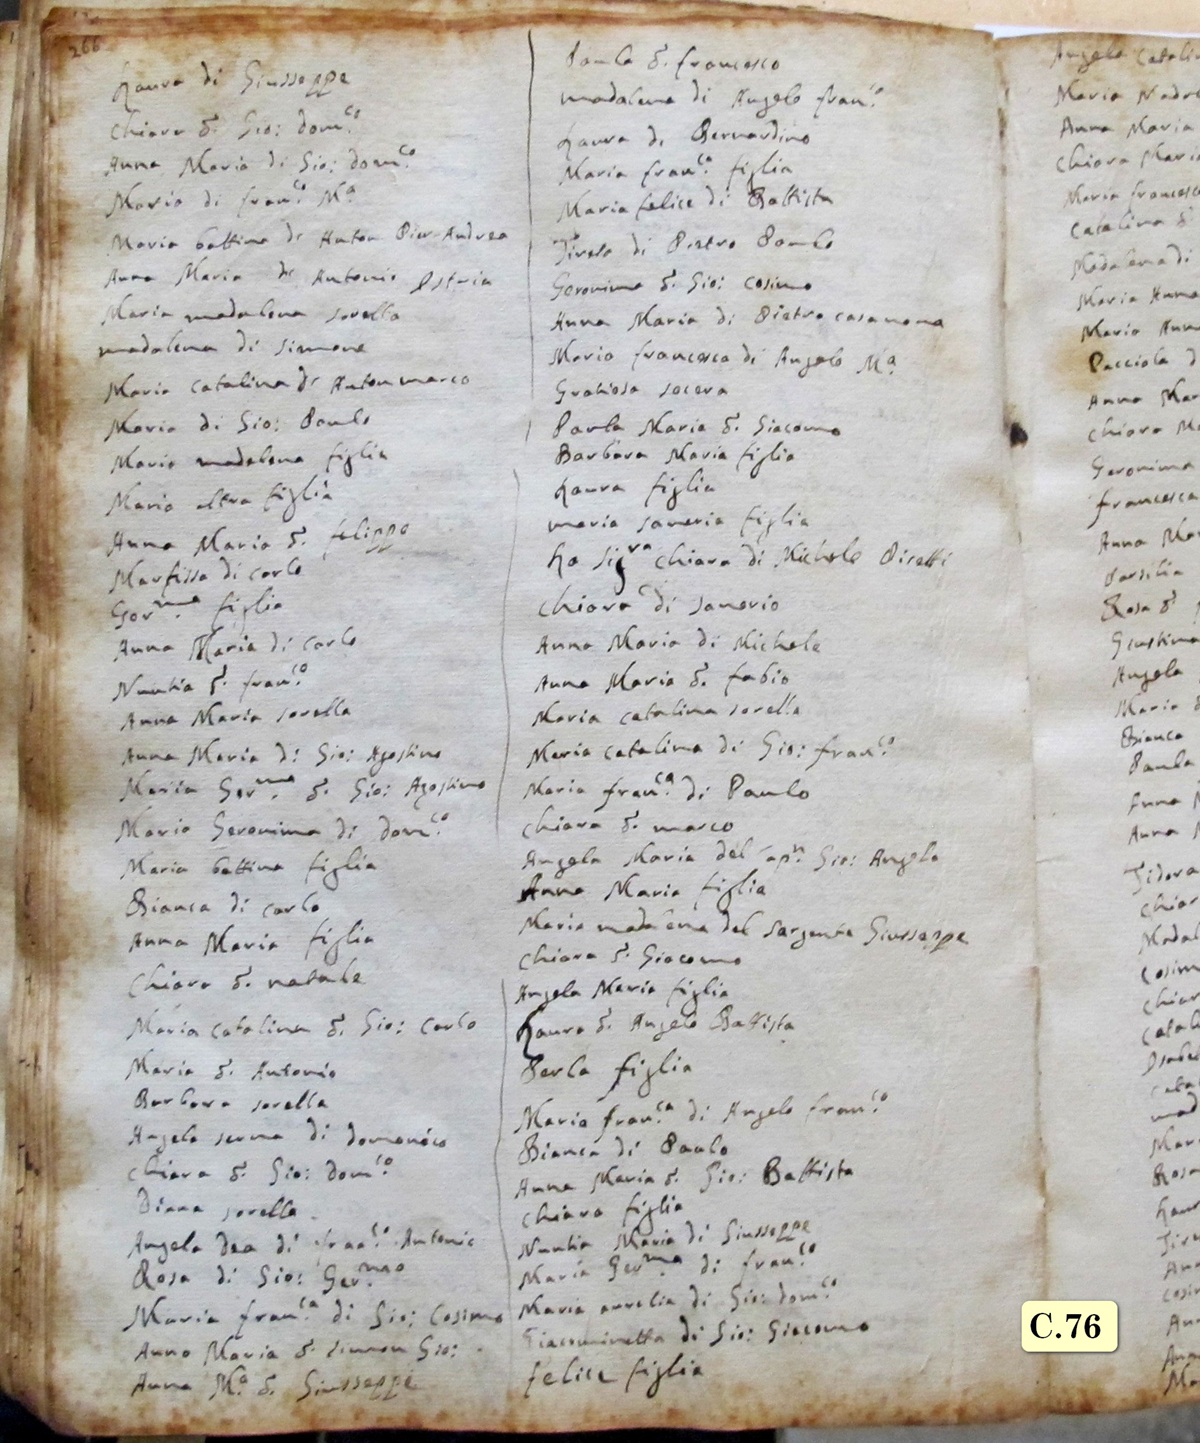 266
Laura di Giusseppe
Chiara q. Gio: dom.co
Anna Maria di Gio: dom.co
Maria di fran.co M.a
Maria battina di Anton Pier Andrea
Anna Maria di Antonio
Maria madalena sorella
madalena di Simone
Maria catalina di Anton marco
Maria di Gio: Paulo
Maria madalena figlia
Maria altra figlia
Anna Maria q. felippo
Marfissa di carlo
Ger.ma figlia
Anna Maria di carlo
Nuntia q. fran.co
Anna Maria sorella
Anna Maria di Gio: Agostino
Maria Ger.ma q. Gio: Agostino
Maria Geronima di dom.co
Maria battina figlia
Bianca di carlo
Anna Maria figlia
Chiara q. natale
Maria catalina q. Gio: Carlo
Maria q. Antonio
Barbara sorella
Angela serena di domenico
Chiara q. Gio: dom.co
Diana sorella
Angela Dea di fran.co Antonio
Rosa di Gio: Ger.mo
Maria fran.ca di Gio: Cosimo
Anna Maria q. simon Gio:
Anna M.a q. Giusseppe
Paula q. francesco
madalena di Angelo fran.co
Laura di Bernardino
Maria fran.ca figlia
Maria felice di Battista
Tiresa di Pietro Paulo
Geronima q. Gio: cosimo
Anna Maria di Pietro casanova
Maria francesca di Angelo M.a
Gratiosa socera
Paula Maria q. Giacomo
Barbara Maria figlia
Laura figlia
maria saveria figlia
La Sig.ra Chiara di Michele
Chiara di saverio
Anna Maria di Michele
Anna Maria q. fabio
Maria catalina sorella
Maria catalina di Gio: fran.co
Maria fran.ca di Paulo
Chiara q. marco
Angela Maria del Cap.n Gio: Angelo
Anna Maria figlia
Maria madalena del Sargente Giusseppe
Chiara q. Giacomo
Angela Maria figlia
Laura q. Angelo Battista
Perla figlia
Maria fran.ca di Angelo fran.co
Bianca di Paulo
Anna Maria q. Gio: Battista
Chiara figlia
Nuntia Maria di Giusseppe
Maria Ger.ma di fran.co
Maria aurelia di Gio: dom.co
Giacominetta di Gio: Giacomo
felice figlia
Angela Catalin
Maria
Anna Maria
Chiara Maria
Maria francesca
Catalina q.
Madalena di
Maria Anna
Maria Anna
Pacciola d
Anna Mar
Chiara Ma
Geronima
francesca
Anna Mar
Rosa q.
Giustina
Angela
Maria
Bianca
Paula
Anna M
Anna M
Chiar
Madal
Cosim
Chiar
Catal
cata
mad
Mar
Rosa
Laur
Tire
Ann
cosi
An
Ann
Ma
C.76